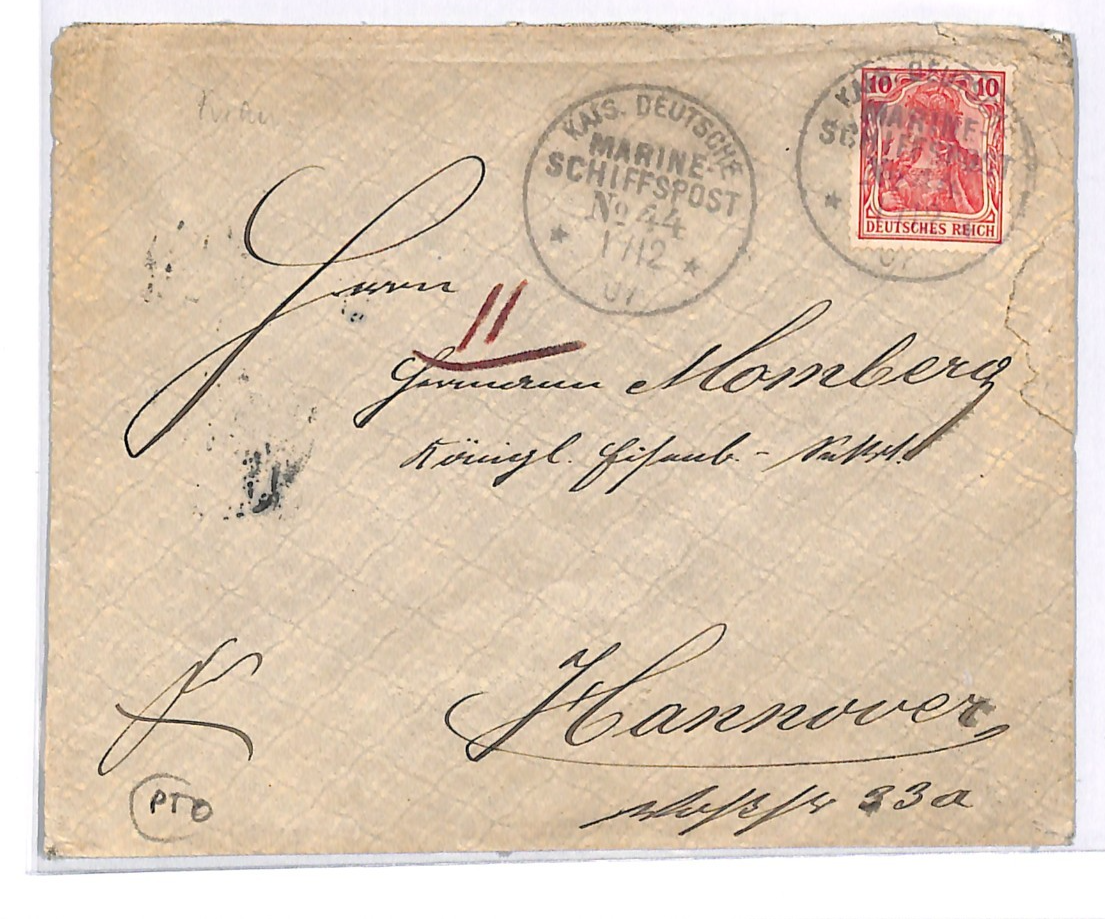 KAIS. DEUTSCHE
MARINE-
SCHIFFSPOST
No 44
17/12
07.
KAIS. DEUTSCHE
MARINE-
SCHIFFSPOST
10 10
DEUTSCHES REICH
Herrn
11
Hermann Momberg
Königl. Eisenb. - Sekret.
Hannover
33a
PTO